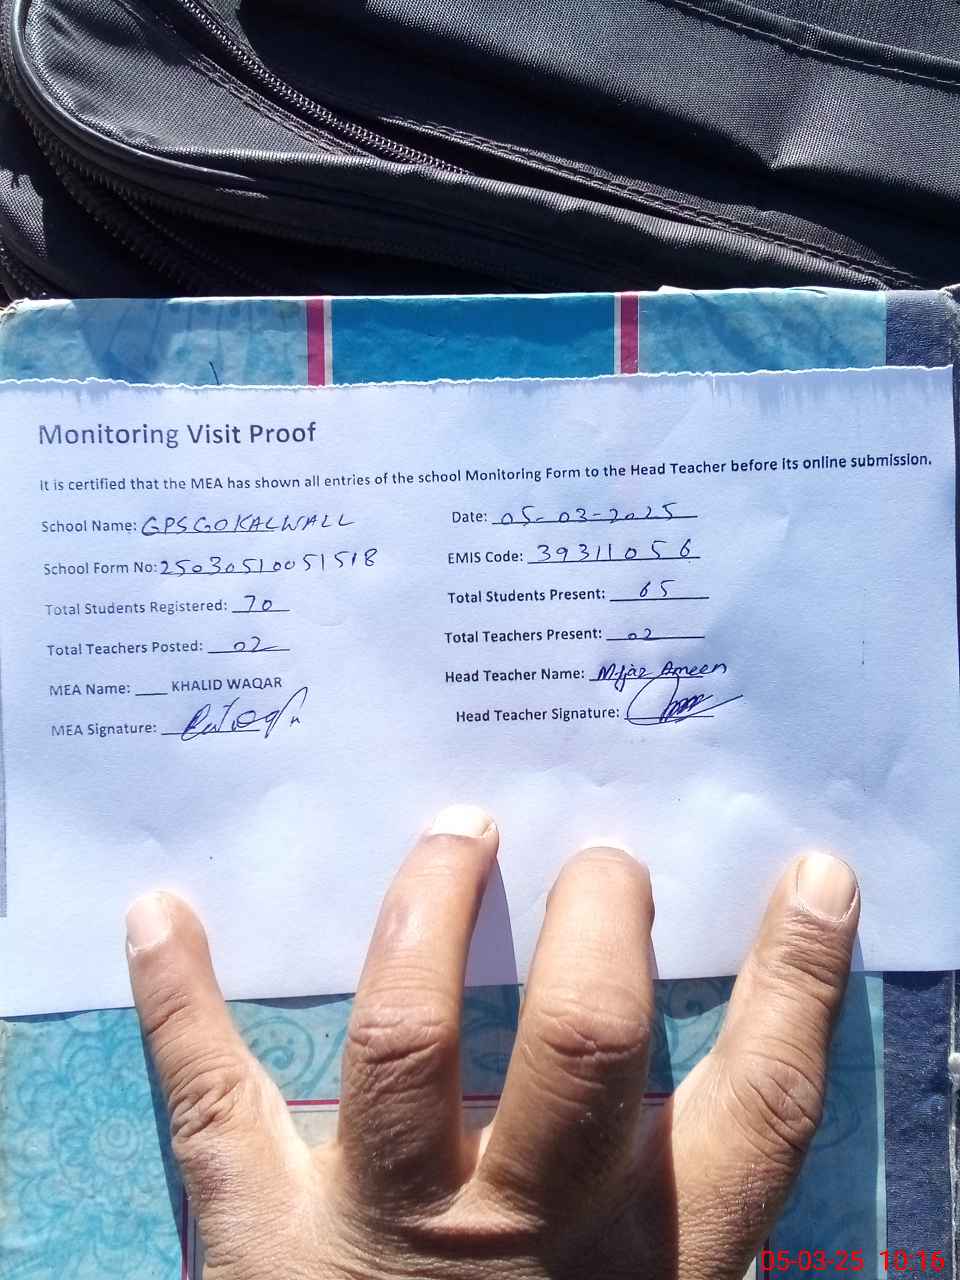 Monitoring Visit Proof
It is certified that the MEA has shown all entries of the school Monitoring Form to the Head Teacher before its online submission.
School Name: GPS GOKALWALL Date: 05-03-2025
School Form No: 25030510051518 EMIS Code: 39311056
Total Students Registered: 70 Total Students Present: 65
Total Teachers Posted: 02 Total Teachers Present: 02
MEA Name: KHALID WAQAR Head Teacher Name: Ameen
MEA Signature: Head Teacher Signature:
05-03-25 10:16